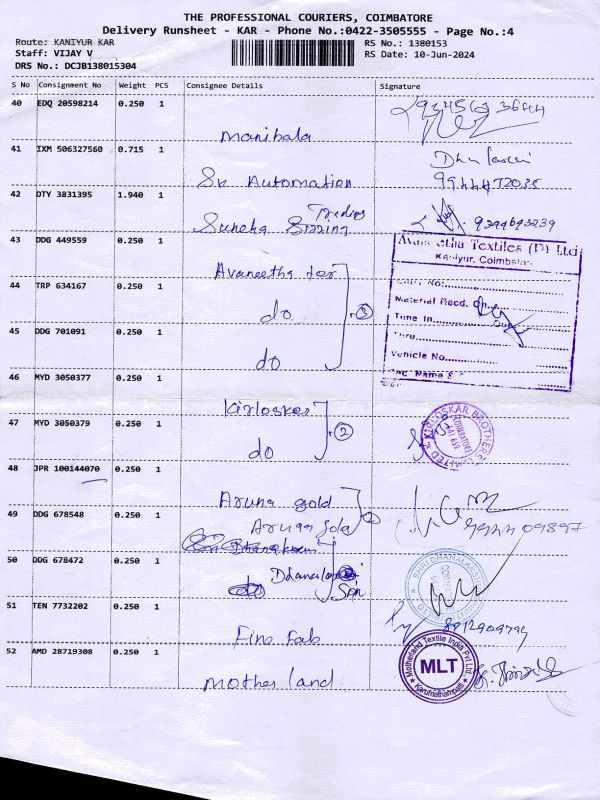 THE PROFESSIONAL COURIERS, COIMBATORE
Delivery Runsheet - KAR - Phone No.:0422-3505555 - Page No.:4
Route: KANIYUR KAR
RS No.: 1380153
Staff: VIJAY V
RS Date: 10-Jun-2024
DRS No.: DCJB138015304
S No Consignment No Weight PCS Consignee Details Signature
40 EDQ 20598214 0.250 1
Manibala
41 IXM 506327560 0.715 1
Sv Automation
42 DTY 3831395 1.940 1
Traders
Suneha Sizzing 9344693239
43 DDG 449559 0.250 1
Avaneetha tex
Textiles (P) Ltd
Kaniyur, Coimbatore
44 TRP 634167 0.250 1
do 3
Material Recd. On
Time In Out
45 DDG 701091 0.250 1
do
Thru
Vehicle No.
Sec. Name &
46 MYD 3050377 0.250 1
Kirloskar
47 MYD 3050379 0.250 1
do 2
KIRLOSKAR BROTHERS LIMITED
COIMBATORE
48 JPR 100144070 0.250 1
Aruna gold
49 DDG 678548 0.250 1
Aruna gold
50 DDG 678472 0.250 1
do
51 TEN 7732202 0.250 1
Fine Fab 8812909794
52 AMD 28719308 0.250 1
Mother land
Motherland Textile India Pvt Ltd
MLT
Karumathampatti